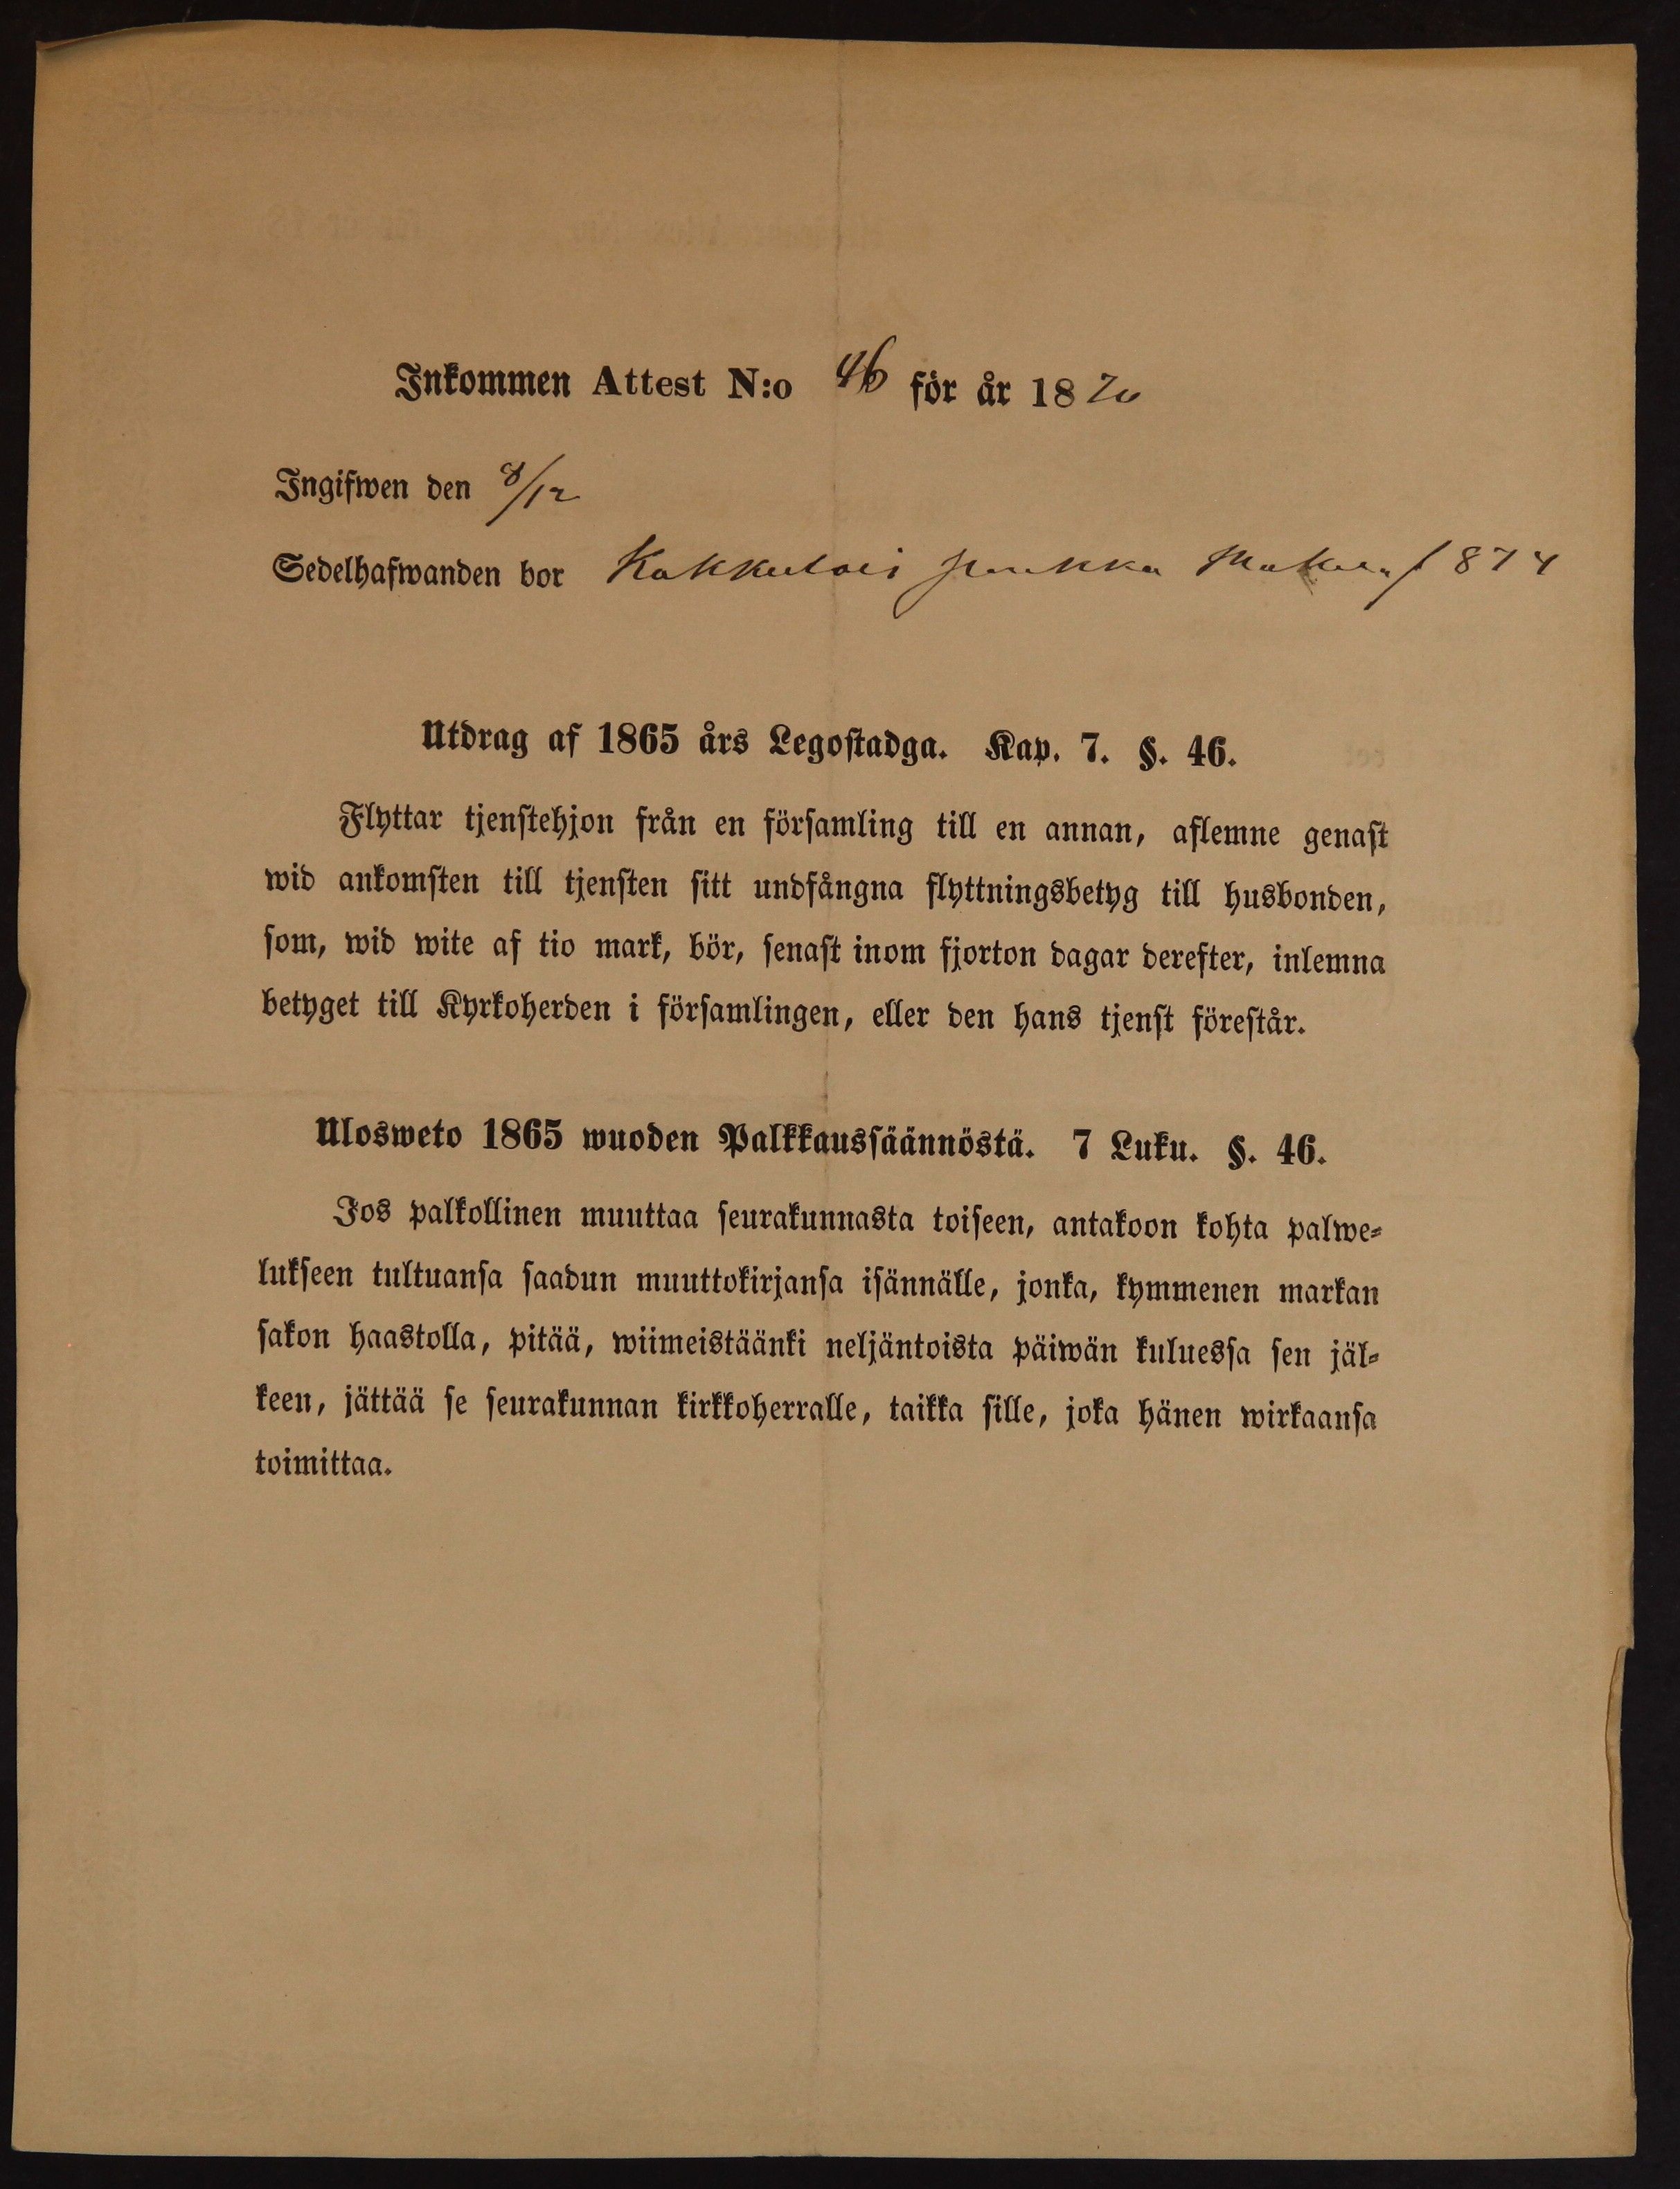 Inkommen Attest N:o 46 för år 18
Ingifwen den 8/12
Sedelhafwanden bor 874
Utdrag af 1865 års Legostadga. Kap. 7. §. 46.
Flyttar tjenstehjon från en församling till en annan, aflemne genast
wid ankomsten till tjensten sitt undfångna flyttningsbetyg till husbonden,
som, wid wite af tio mark, bör, senast inom fjorton dagar derefter, inlemna
betyget till Kyrkoherden i församlingen, eller den hans tjenst förestår.
Ulosweto 1865 wuoden Palkkaussäännöstä. 7 Luku. §. 46.
Jos palkollinen muuttaa seurakunnasta toiseen, antakoon kohta palwe-
lukseen tultuansa saadun muuttokirjansa isännälle, jonka, kymmenen markan
sakon haastolla, pitää, wiimeistäänki neljäntoista päiwän kuluessa sen jäl-
keen, jättää se seurakunnan kirkkoherralle, taikka sille, joka hänen wirkaansa
toimittaa.